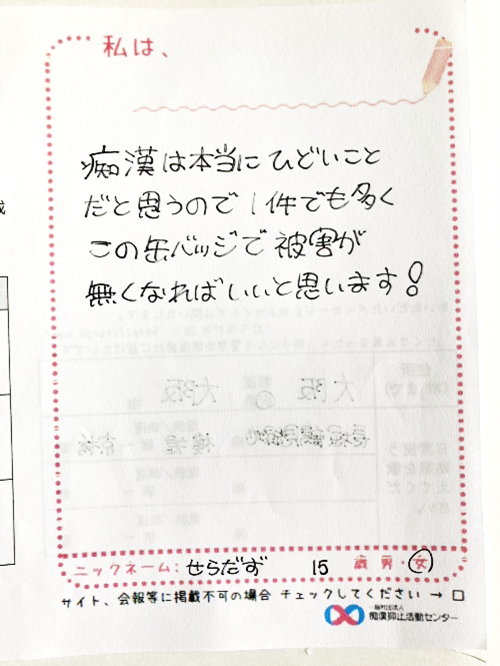 私は、
痴漢は本当にひどいこと
だと思うので1件でも多く
この缶バッジで被害が
無くなればいいと思います!
ニックネーム: せらだず 15 歳 男・女
サイト、会報等に掲載不可の場合 チェックしてください → □
一般社団法人
痴漢抑止活動センター